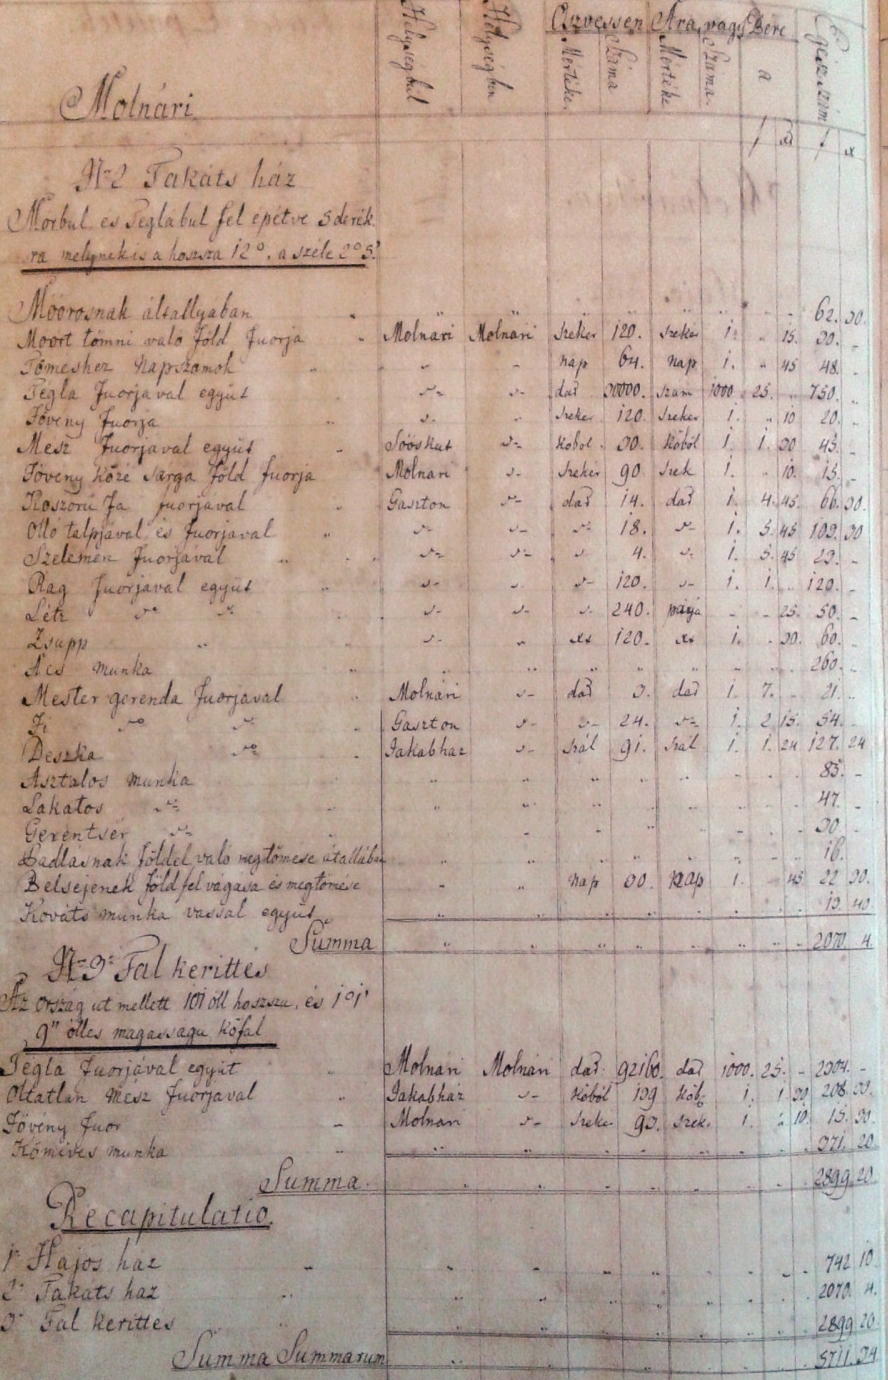 Helységbül Helységbe Öszvessen Ára, vagy Bére Egész Sum̃
Mértéke Száma Mértéke Száma a
Molnári
f xr f x
Nº 2 Takáts ház
Mórbul és Teglábul fel épétve 3 derék
ra melynek is a hossza 12º, a széle 2º 5'
Móorosnak általlyában „ „ „ „ „ „ „ „ „ 62. 30.
Moort tömni való föld fuorja „ Molnári Molnári Szeker 120. Szeker 1. „ 15. 30. -
Tömeshez Napszámok „ „ „ nap 64. nap 1. „ 45 48. -
Tégla fuorjával együt dar. 30000. szám 1000 25. - 750. -
Föveny fuorja Szeker 120. Szeker 1. „ 10 20. -
Mesz fuorjával együt Sóóskut köböl 30. köböl 1. 1. 30 45. -
Föveny közé sárga föld fuorja Molnári Szeker 90. Szek 1. „ 10. 15. -
Koszorú fa fuorjával Gaszton dar 14. dar 1. 4. 45. 66. 30.
Olló talpjával és fuorjával 18. 1. 5. 45 103. 30
Szelemen fuorjával „ „ 4. 1. 5. 45 23. -
Rag fuorjával együt „ 120. 1. 1. .. 120. -
Létz 240. „ - 25. 50. -
Zsupp „ 120. 1. . 30. 60. -
Ács munka „ „ „ „ „ „ „ „ „ 260. -
Mester gerenda fuorjával Molnári dar 3. dar 1. 7. .. 21. ..
Gaszton 24. 1. 2. 15. 54. -
Deszka Jakabház szál 91. szál 1. 1. 24 127. 24
Asztalos munka „ „ „ „ „ „ „ 85. -
Lakatos „ „ „ „ „ „ „ 47. -
Gerentsér „ „ „ „ „ „ „ 30. -
Padlásnak földel való megtömese átallában „ „ „ „ „ „ „ 16. -
Belsejenek föld fel vágása és megtömése „ „ nap 30. nap 1. - 45 22 30.
Kováts munka vassal együt „ „ „ „ „ „ „ „ 13. 40
Summa „ „ „ „ „ „ „ „ 2070. 4.
Nº 3º Fal kerittés
Az ország út mellett 101 öll hoszszu, és 1º 1'
9" ölles magasságu kőfal
Tégla fuorjával együt „ Molnári Molnári dar. 92160. dar 1000. 25. - 2304. -
Oltatlan mész fuorjával „ Jakabház köböl 139 köb. 1. 1 30. 208. 30.
Fövény fuor - Molnári Szeker 93. Szek. 1. „ 10. 15. 30.
Kömives munka „ „ „ „ „ „ „ „ 371. 20.
Summa. „ „ „ „ „ „ „ „ 2899. 20.
Recapitulatio.
1º Hajos ház „ „ „ „ „ „ „ „ 742. 10.
2º Takáts ház „ „ „ „ „ „ „ „ 2070. 4.
3º Fal kerittes „ „ „ „ „ „ „ „ 2899. 20.
Summa Summarum „ „ „ „ „ „ „ „ 5711. 34